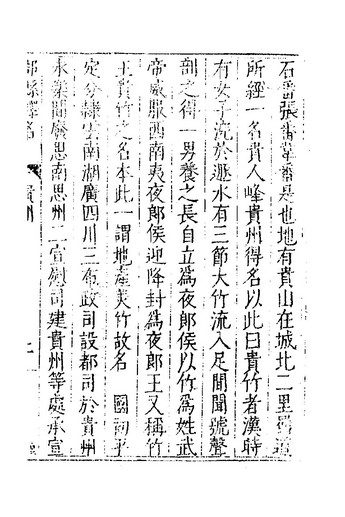 石番張番韋番是也地有貴山在城北二里蜀道
所經一名貴人峰貴州得名以此曰貴竹者漢時
有女子浣於遯水有三節大竹流入足間聞號聲
剖之得一男養之長自立爲夜郎侯以竹爲姓武
帝威服西南夷夜郎侯迎降封爲夜郎王又稱竹
王貴竹之名本此一謂地產美竹故名 國初平
定分隸雲南湖廣四川三布政司設都司於貴州
永樂間廢思南思州二宣慰司建貴州等處承宣
郡縣釋名 貴州